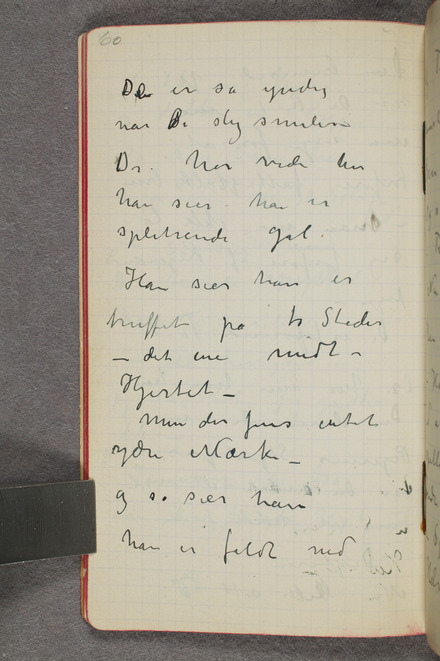 60
De er så yndig
når De slig smiler
Dr. har vede hin
han sier han er
splitrende gal.
Han sier han er
truffet på to Steder
– det ene midt –
Hjertet –
Men der fins intet
ydre Mærke –
og så sier han
han er faldt ned